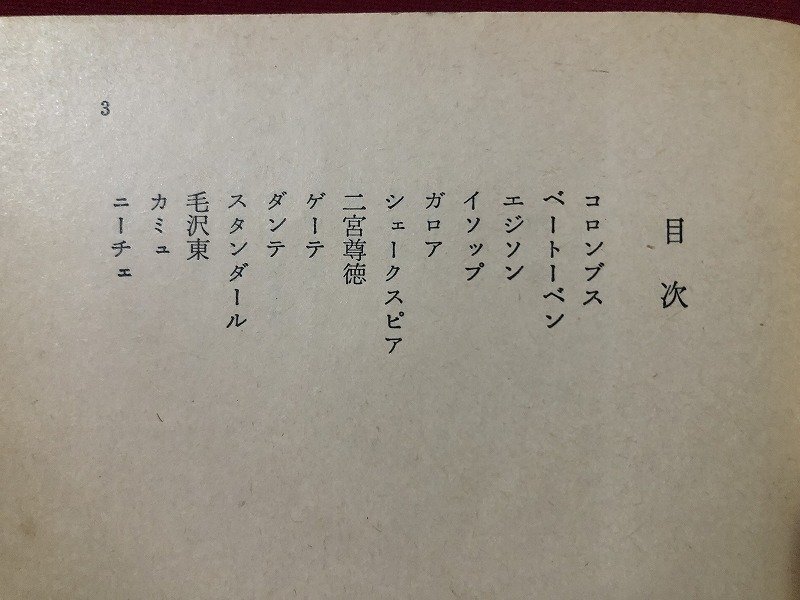 目次
コロンブス
ベートーベン
エジソン
イソップ
ガロア
シェークスピア
二宮尊徳
ゲーテ
ダンテ
スタンダール
毛沢東
カミュ
ニーチェ
3